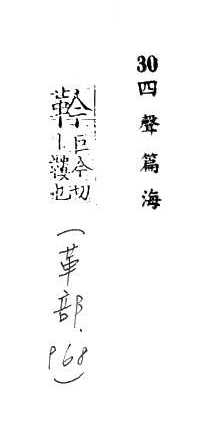 30四聲篇海
靲
巨今切
丨鞻也
(革部.P68)